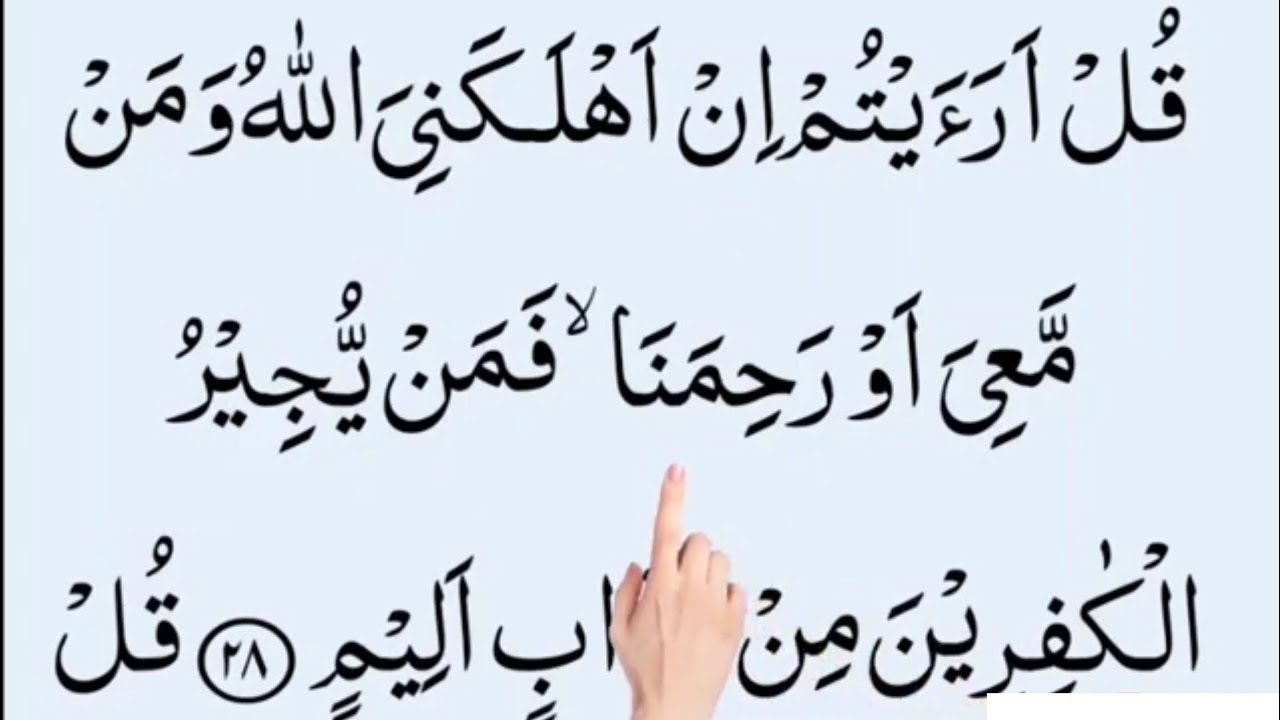 قُلْ اَرَءَيْتُمْ اِنْ اَهْلَـكَنِىَ اللّٰهُ وَمَنْ
مَّعِىَ اَوْ رَحِمَنَا ۙ فَمَنْ يُّجِيْرُ
الْكٰفِرِيْنَ مِنْ اَلِيْمٍ ٢٨ قُلْ